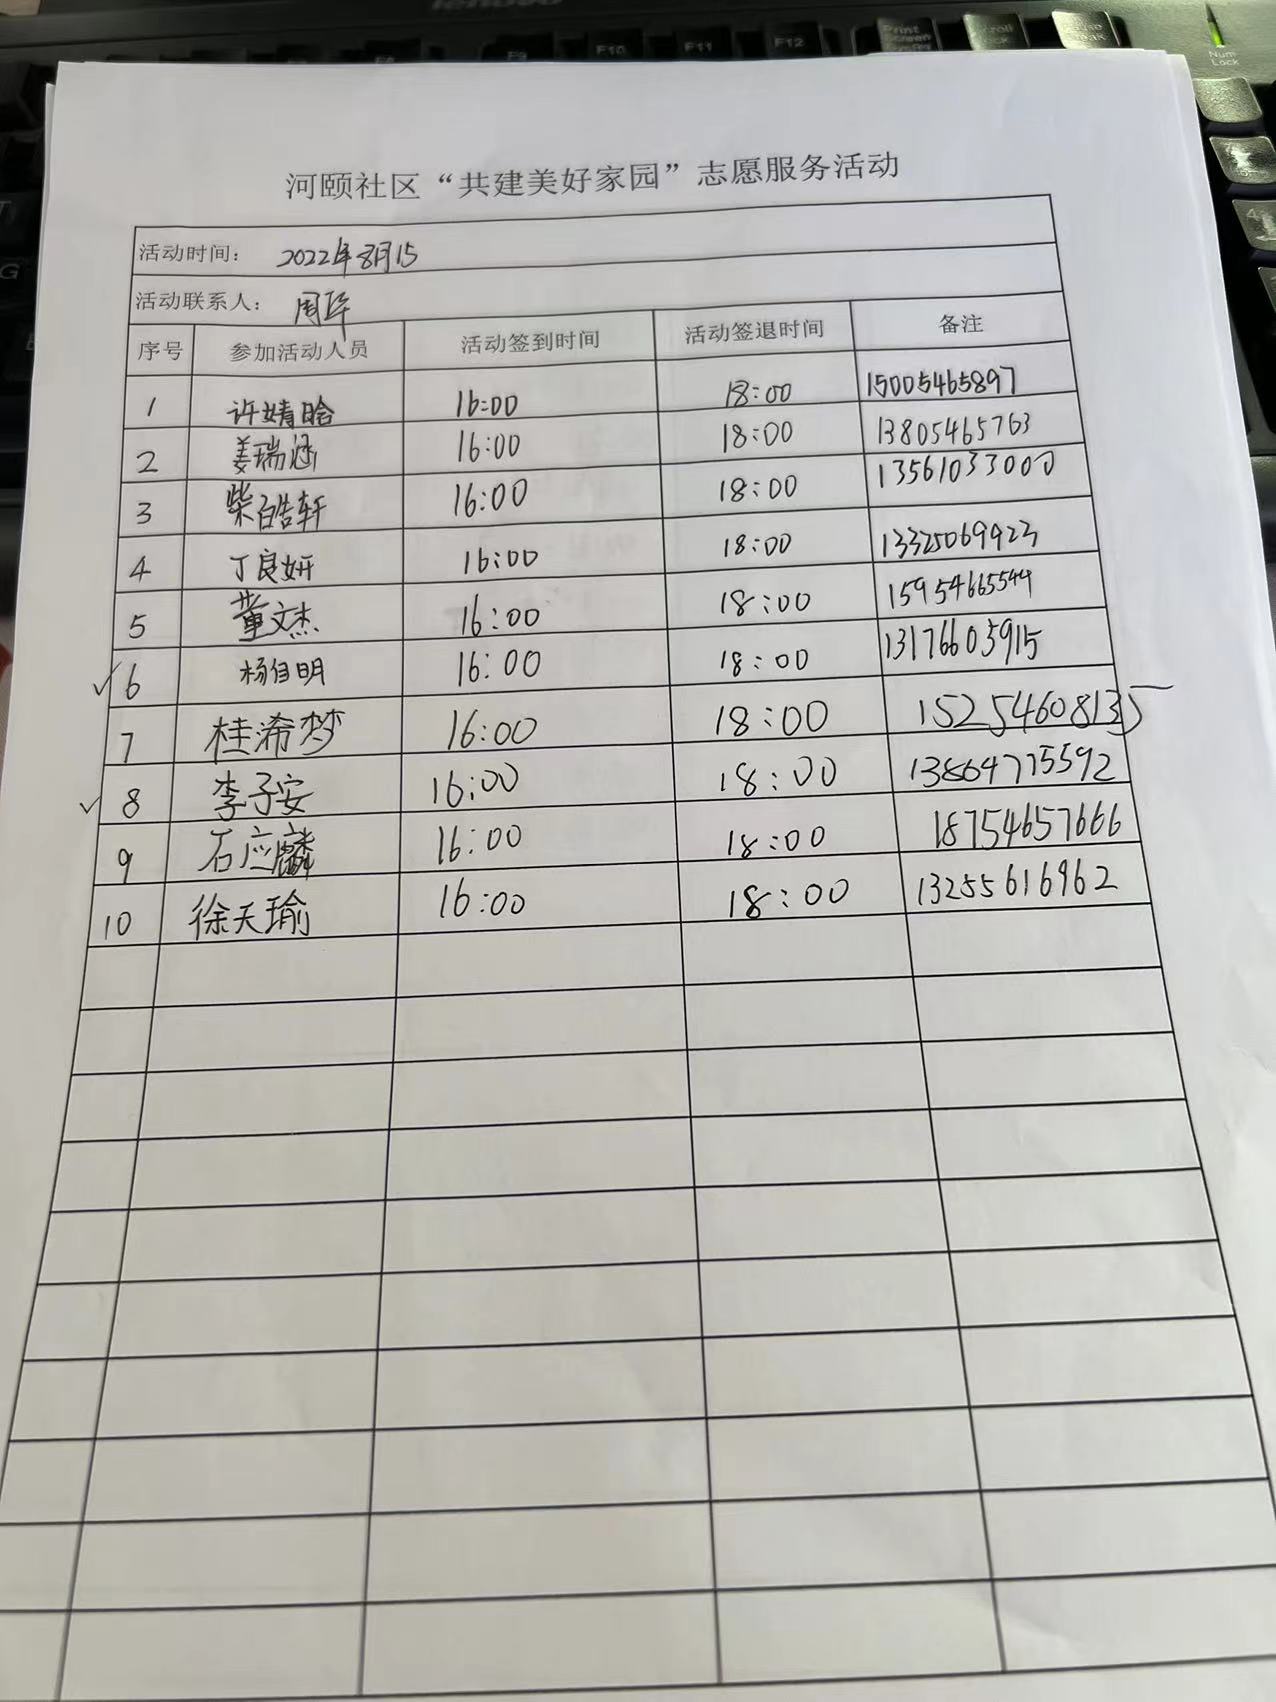 lenovo
F9 F10 F11 F12 Print Screen SysRq Scroll Lock Pause Break Num Lock
河颐社区“共建美好家园”志愿服务活动
活动时间： 2022年8月15
活动联系人： 周华
序号 参加活动人员 活动签到时间 活动签退时间 备注
1 许婧晗 16:00 18:00 15005465897
2 姜瑞涵 16:00 18:00 13805465763
3 柴皓轩 16:00 18:00 13561033000
4 丁良妍 16:00 18:00 13325069923
5 董文杰 16:00 18:00 15954665544
✓6 杨自明 16:00 18:00 13176605915
7 桂浠梦 16:00 18:00 15254608135
✓8 李子安 16:00 18:00 13864775592
9 石应麟 16:00 18:00 18754657666
10 徐天瑜 16:00 18:00 13255616962